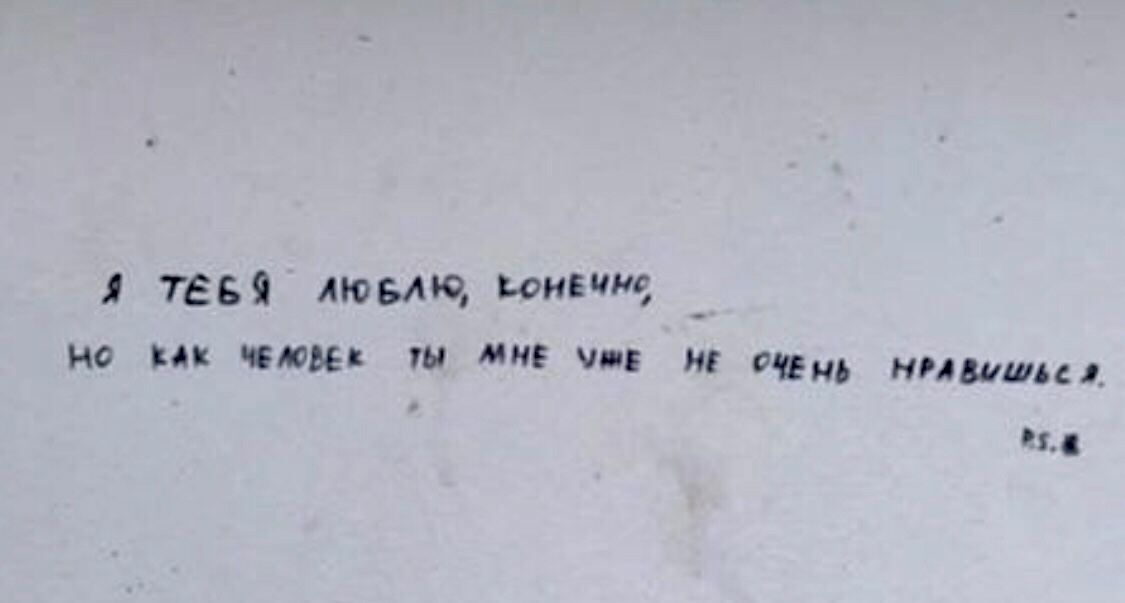 Я ТЕБЯ ЛЮБЛЮ, КОНЕЧНО,
НО КАК ЧЕЛОВЕК ТЫ МНЕ УЖЕ НЕ ОЧЕНЬ НРАВИШЬСЯ.
P.S.